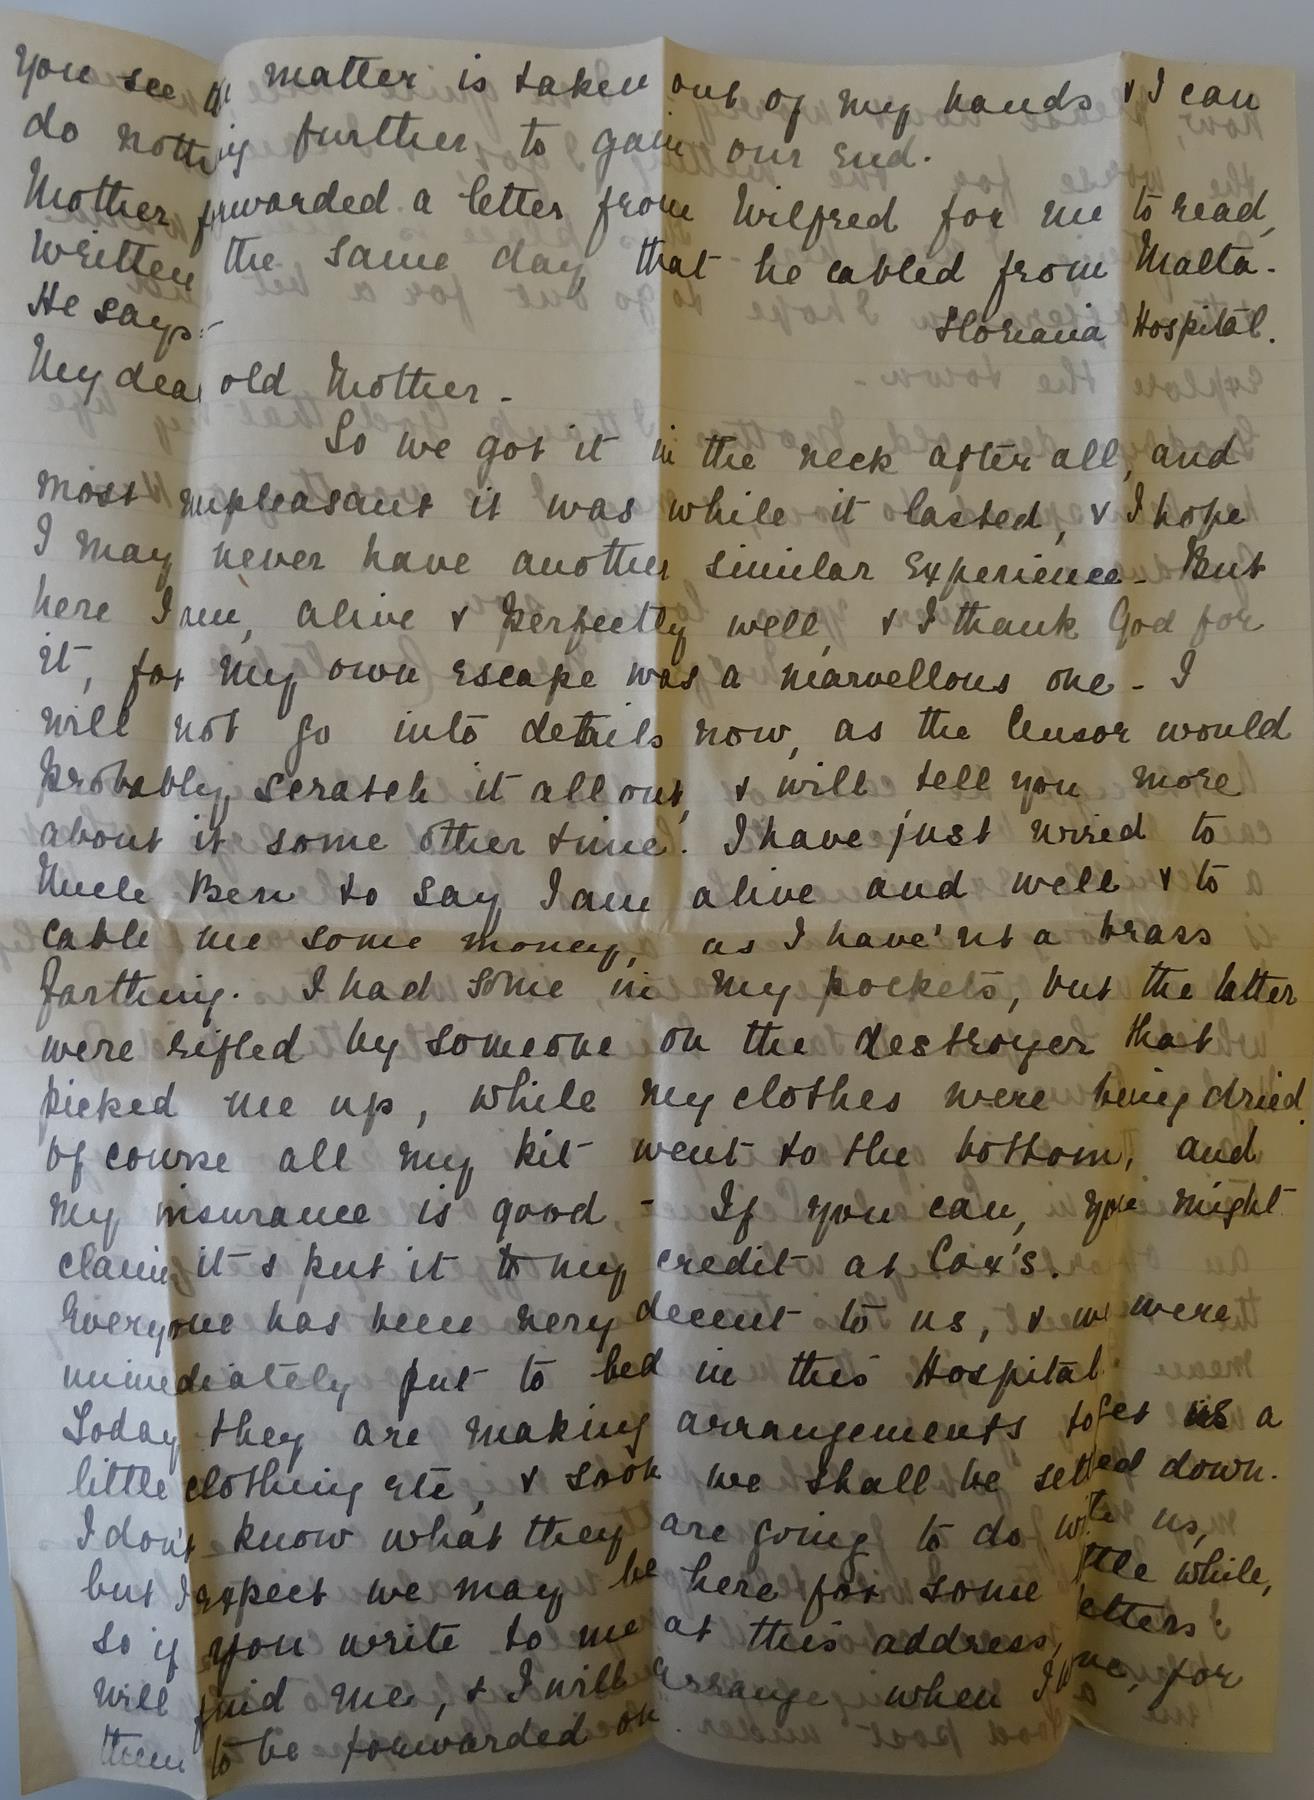 You see the matter is taken out of my hands & I can
do nothing further, to gain our end.
Mother forwarded a letter from Wilfred for me to read,
written the same day, that he cabled from Malta.
He says:-
Floriana Hospital.
My dear old Mother.
So we got it in the neck after all, and
most unpleasant it was while it lasted, & I hope
I may never have another similar experience. But
here I am, alive & perfectly well, & I thank God for
it, for my own escape was a marvellous one. I
will not go into details now, as the Censor would
probably scratch it all out, & will tell you more
about it some other time. I have just wired to
Uncle Ben to say I am alive and well & to
cable me some money, as I have'nt a brass
farthing. I had some in my pockets, but the latter
were rifled by someone on the destroyer that
picked me up, while my clothes were being dried.
Of course all my kit went to the bottom, and
my insurance is good - If you can, you might
claim it & put it to my credit at Cox's.
Everyone has been very decent to us, & we were
immediately put to bed in this Hospital.
Today they are making arrangements to get us a
little clothing etc, & soon we shall be settled down.
I don't know what they are going to do with us,
but I expect we may be here for some little while,
so if you write to me at this address, letters
will find me, & I will arrange when I move, for
them to be forwarded on.